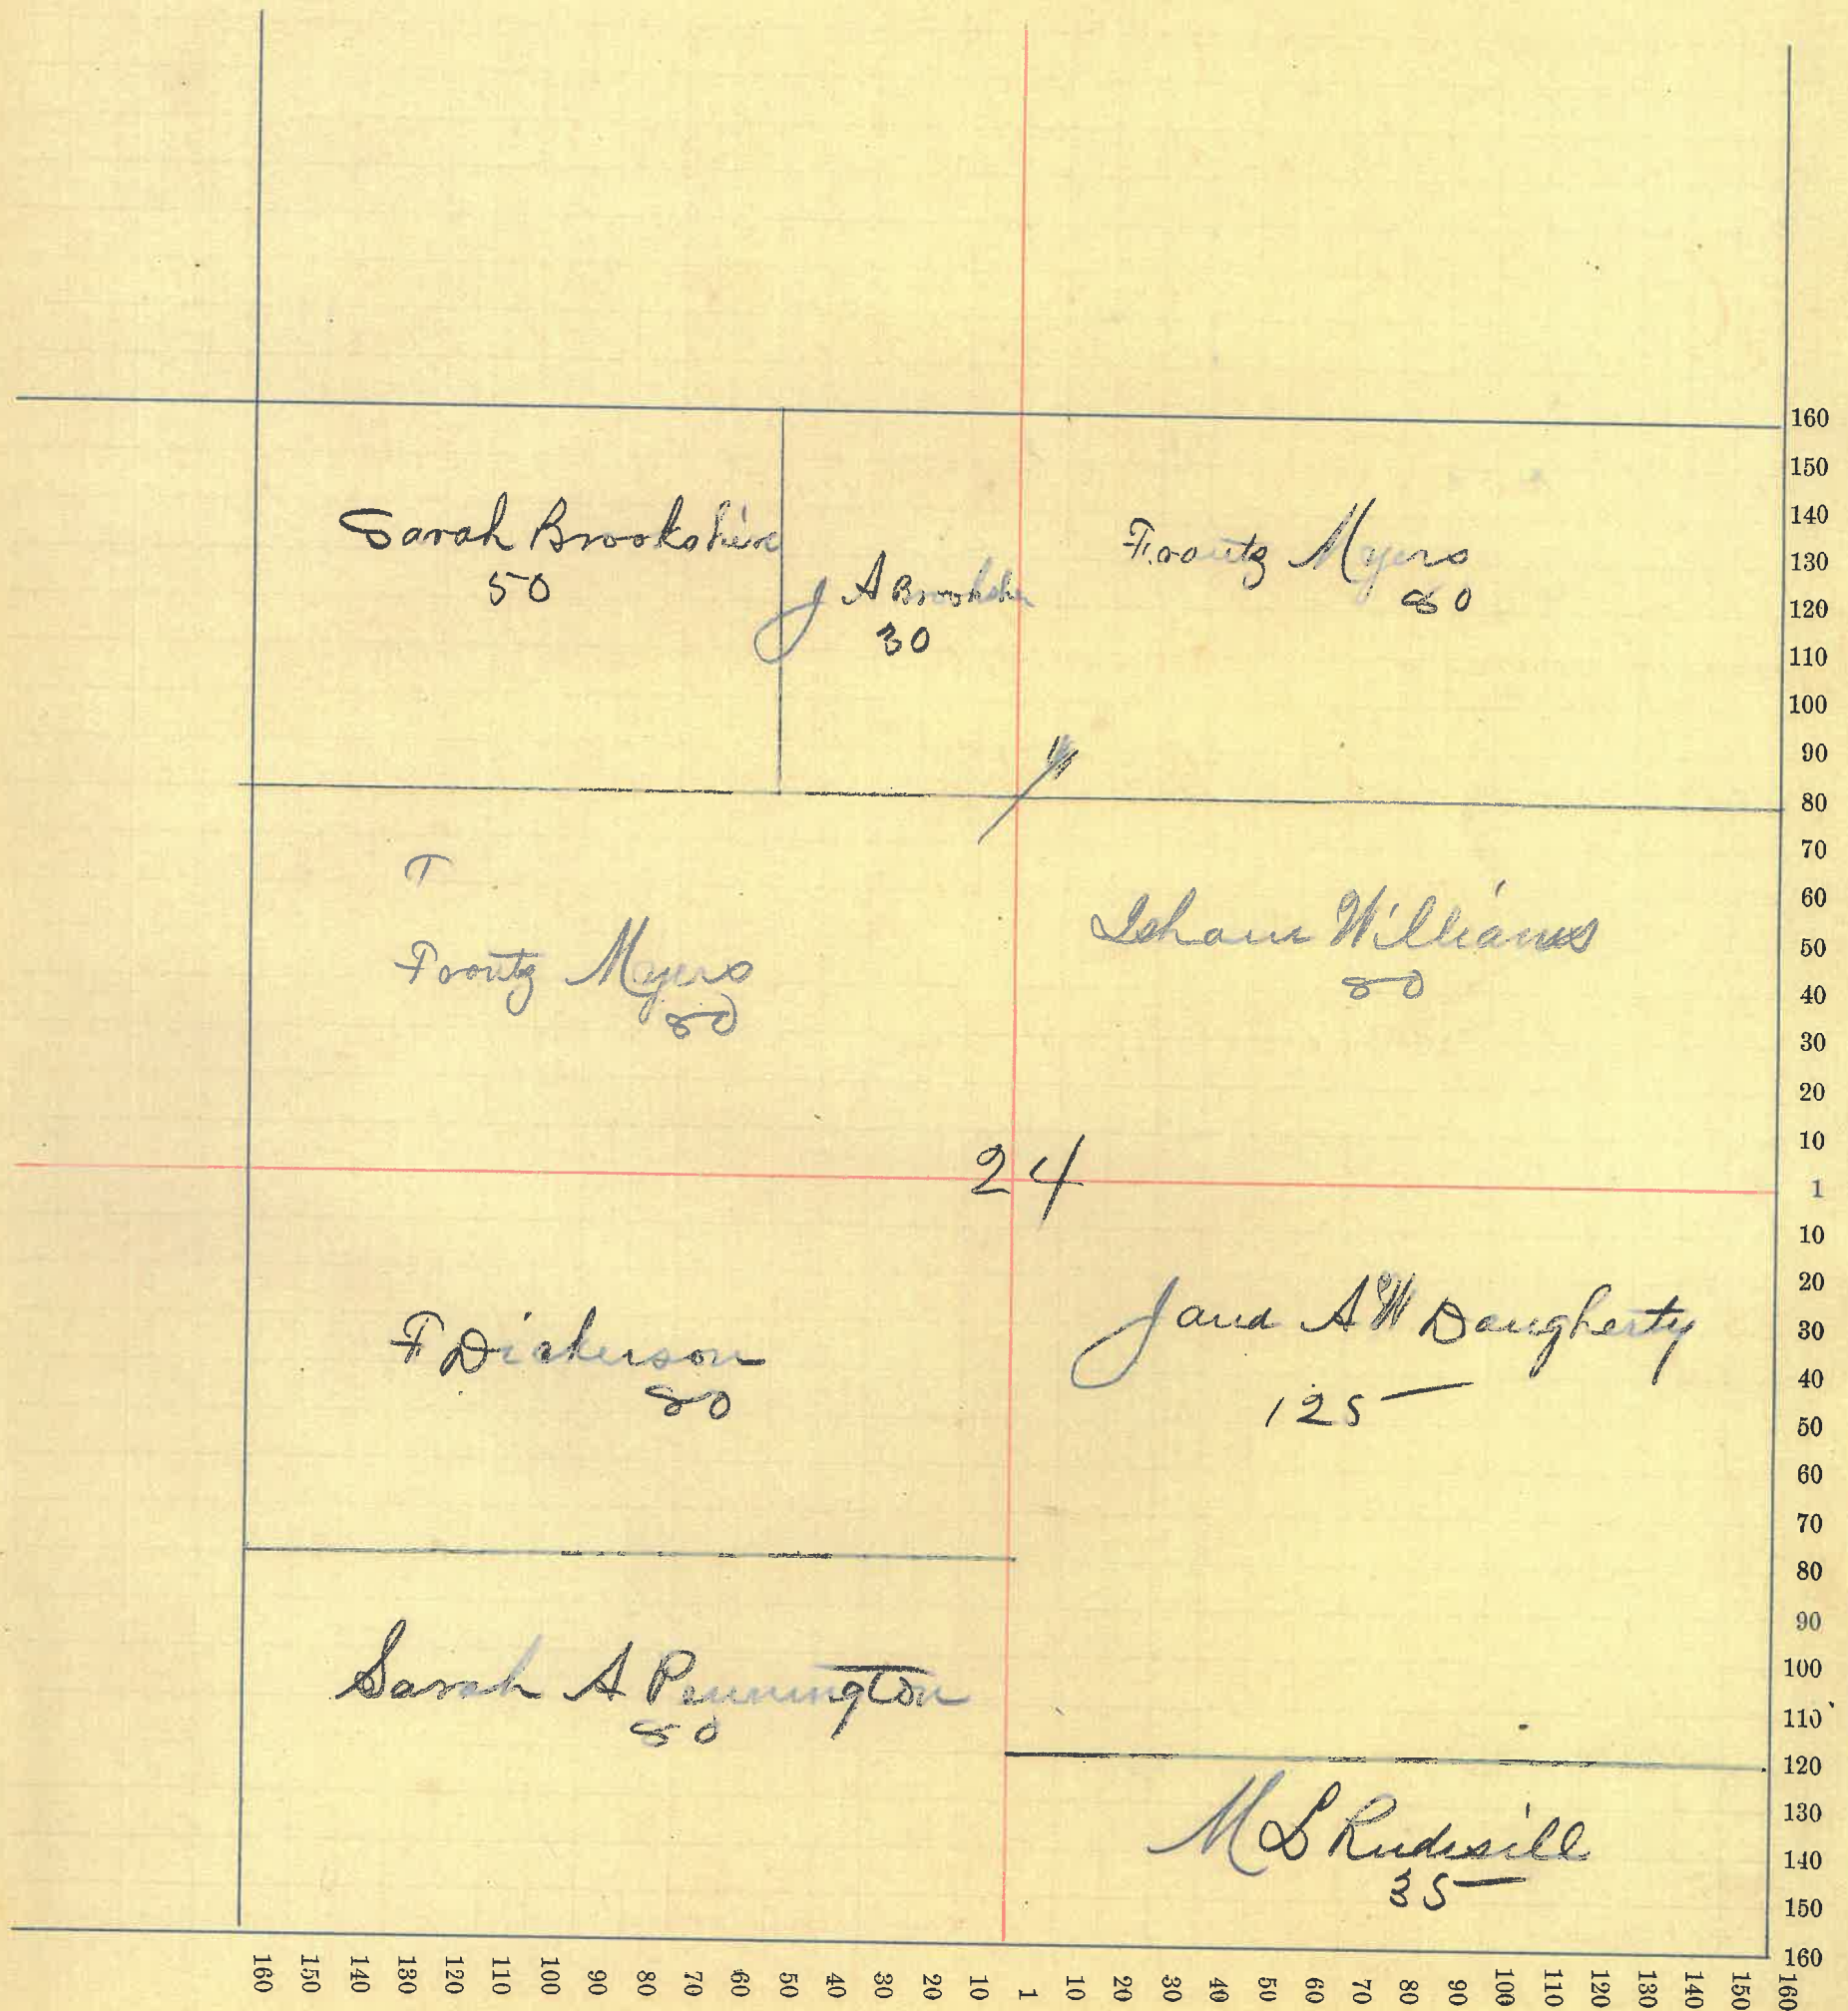 Sarah Brookshire
50
J A Brookshr
30
Frantz Myers
80
T
Frantz Myers
80
Isham Williams
80
24
F Dickerson
80
J and A W Daugherty
125
Sarah A Pennington
80
M L Rudisill
35
160
150
140
130
120
110
100
90
80
70
60
50
40
30
20
10
1
10
20
30
40
50
60
70
80
90
100
110
120
130
140
150
160
160 150 140 130 120 110 100 90 80 70 60 50 40 30 20 10 1 10 20 30 40 50 60 70 80 90 100 110 120 130 140 150 160